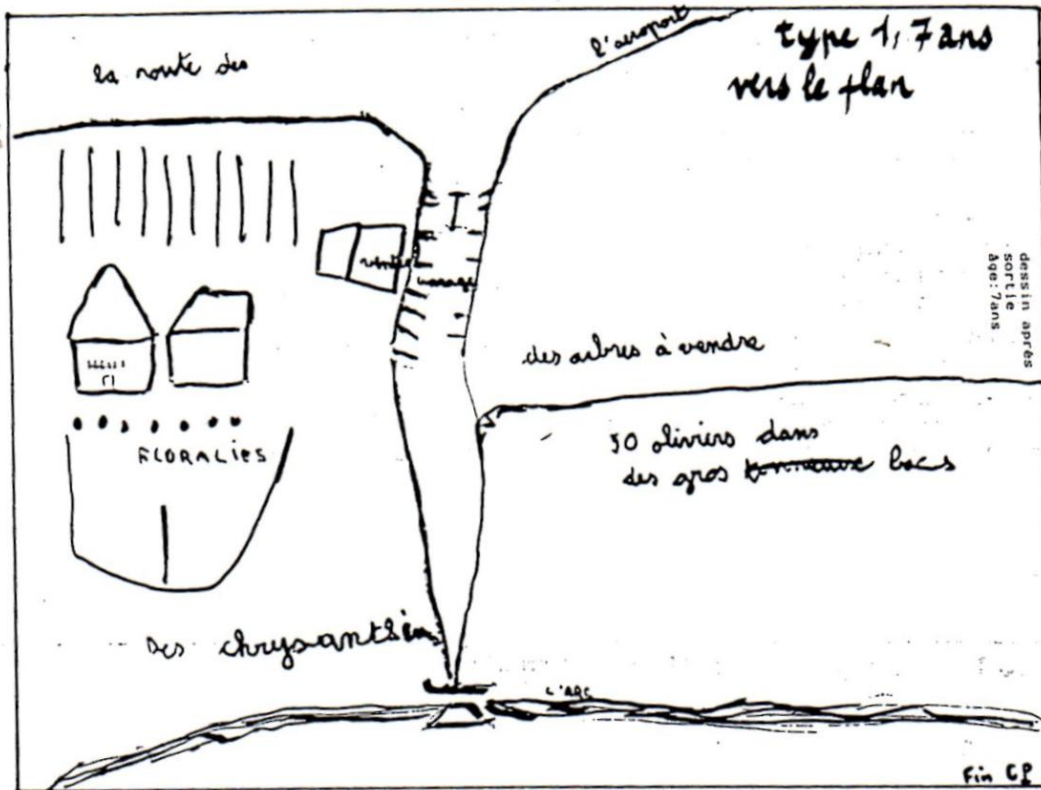 l'aéroport
type 1, 7 ans
vers le plan
la route des
dessin après
sortie
âge: 7ans
vente
des arbres à vendre
FLORALIES
50 oliviers dans
des gros bacs
Des chrysanthèmes
L'ARC
Fin CP